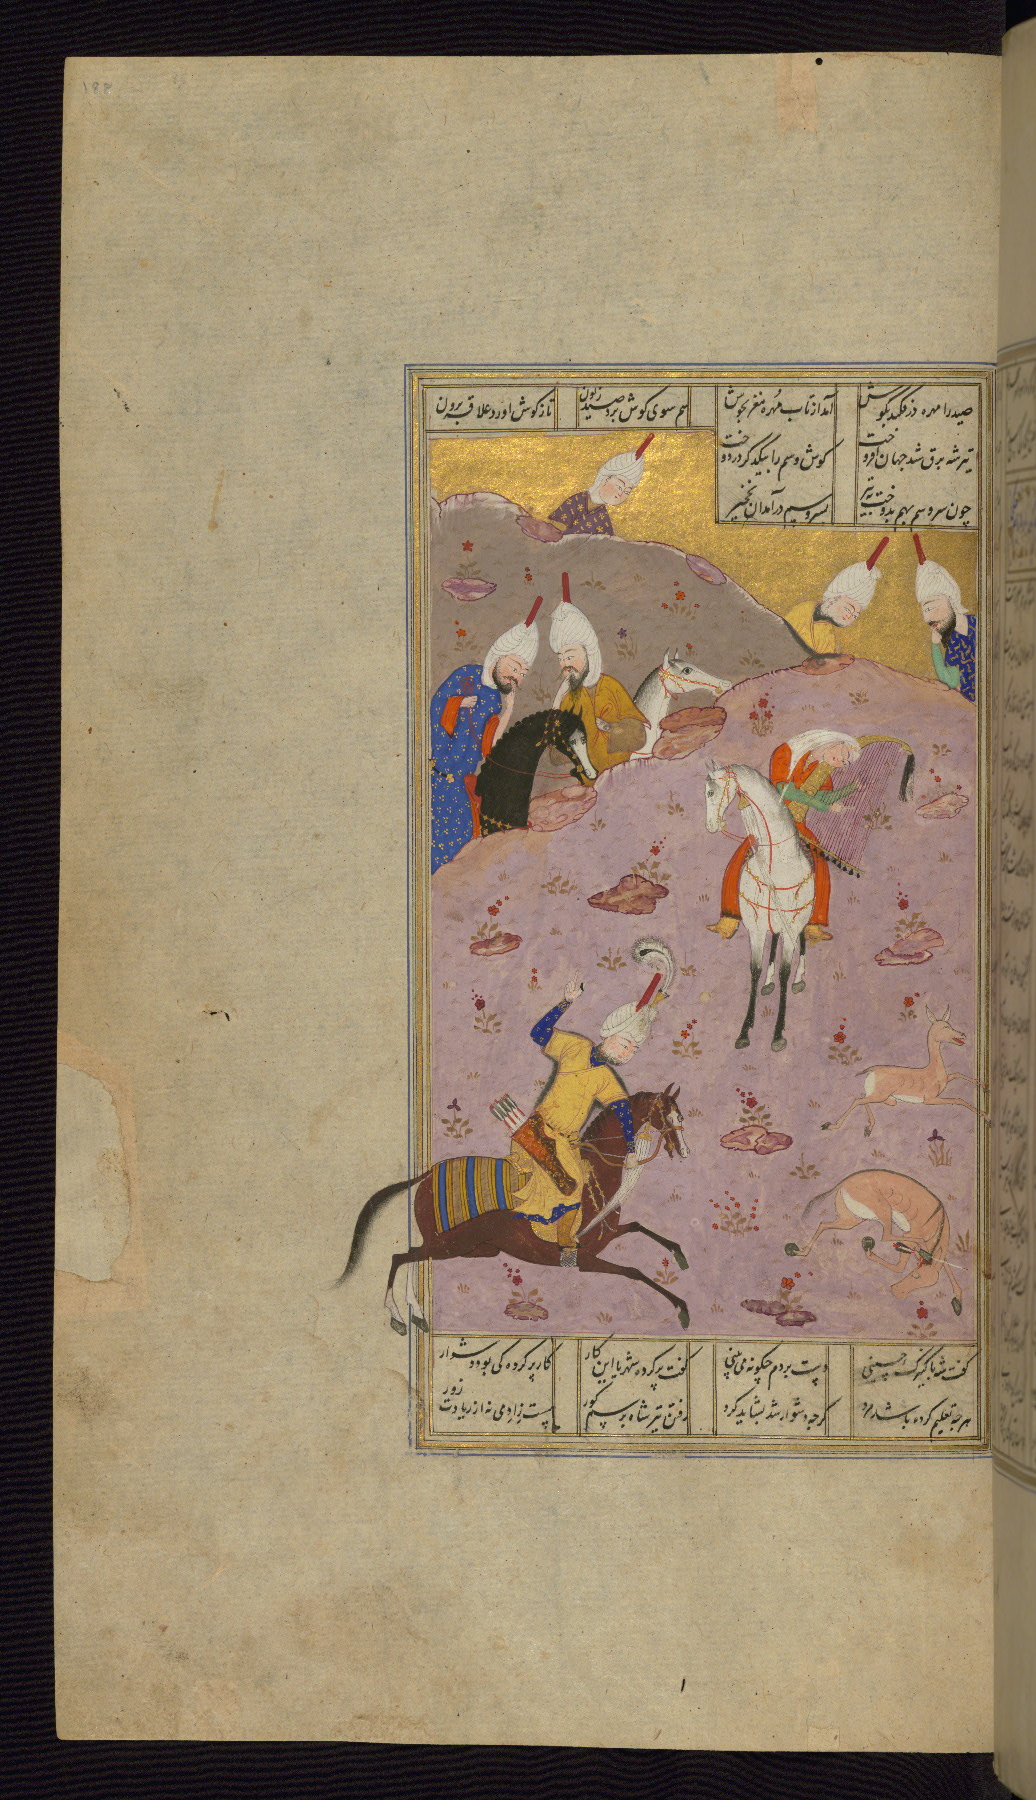 صید را مهره در فکند بگوش
آمد از تاب مهره مغز بجوش
سم سوی گوش برد صید زبون
تا ز گوش آورد علاقه برون
تیر شه برق شد جهان افروخت
گوش و سم را بیکدگر در دوخت
چون سر و سم بهم بدوخت بتیر
بسر و سم درآمد آن نخجیر
گفت شه با کنیزک چینی
دست بردم چگونه می بینی
گفت پر کرده شهریار این کار
کار پر کرده کی بود دشوار
هرچه تعلیم کرده باشد مرد
گرچه دشوار شد بشاید کرد
رفتن تیر شاه بر سم گور
هست ز ادمی نه از زیادت زور
۱۸۸